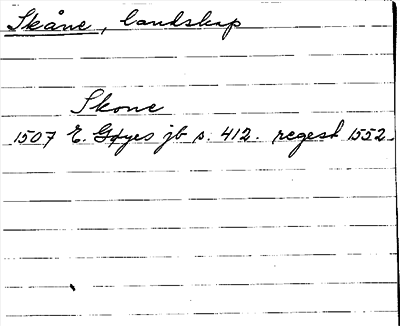 Skåne, landskap
Skone
1507 E. Gøyes jb s. 412. regest 1552.